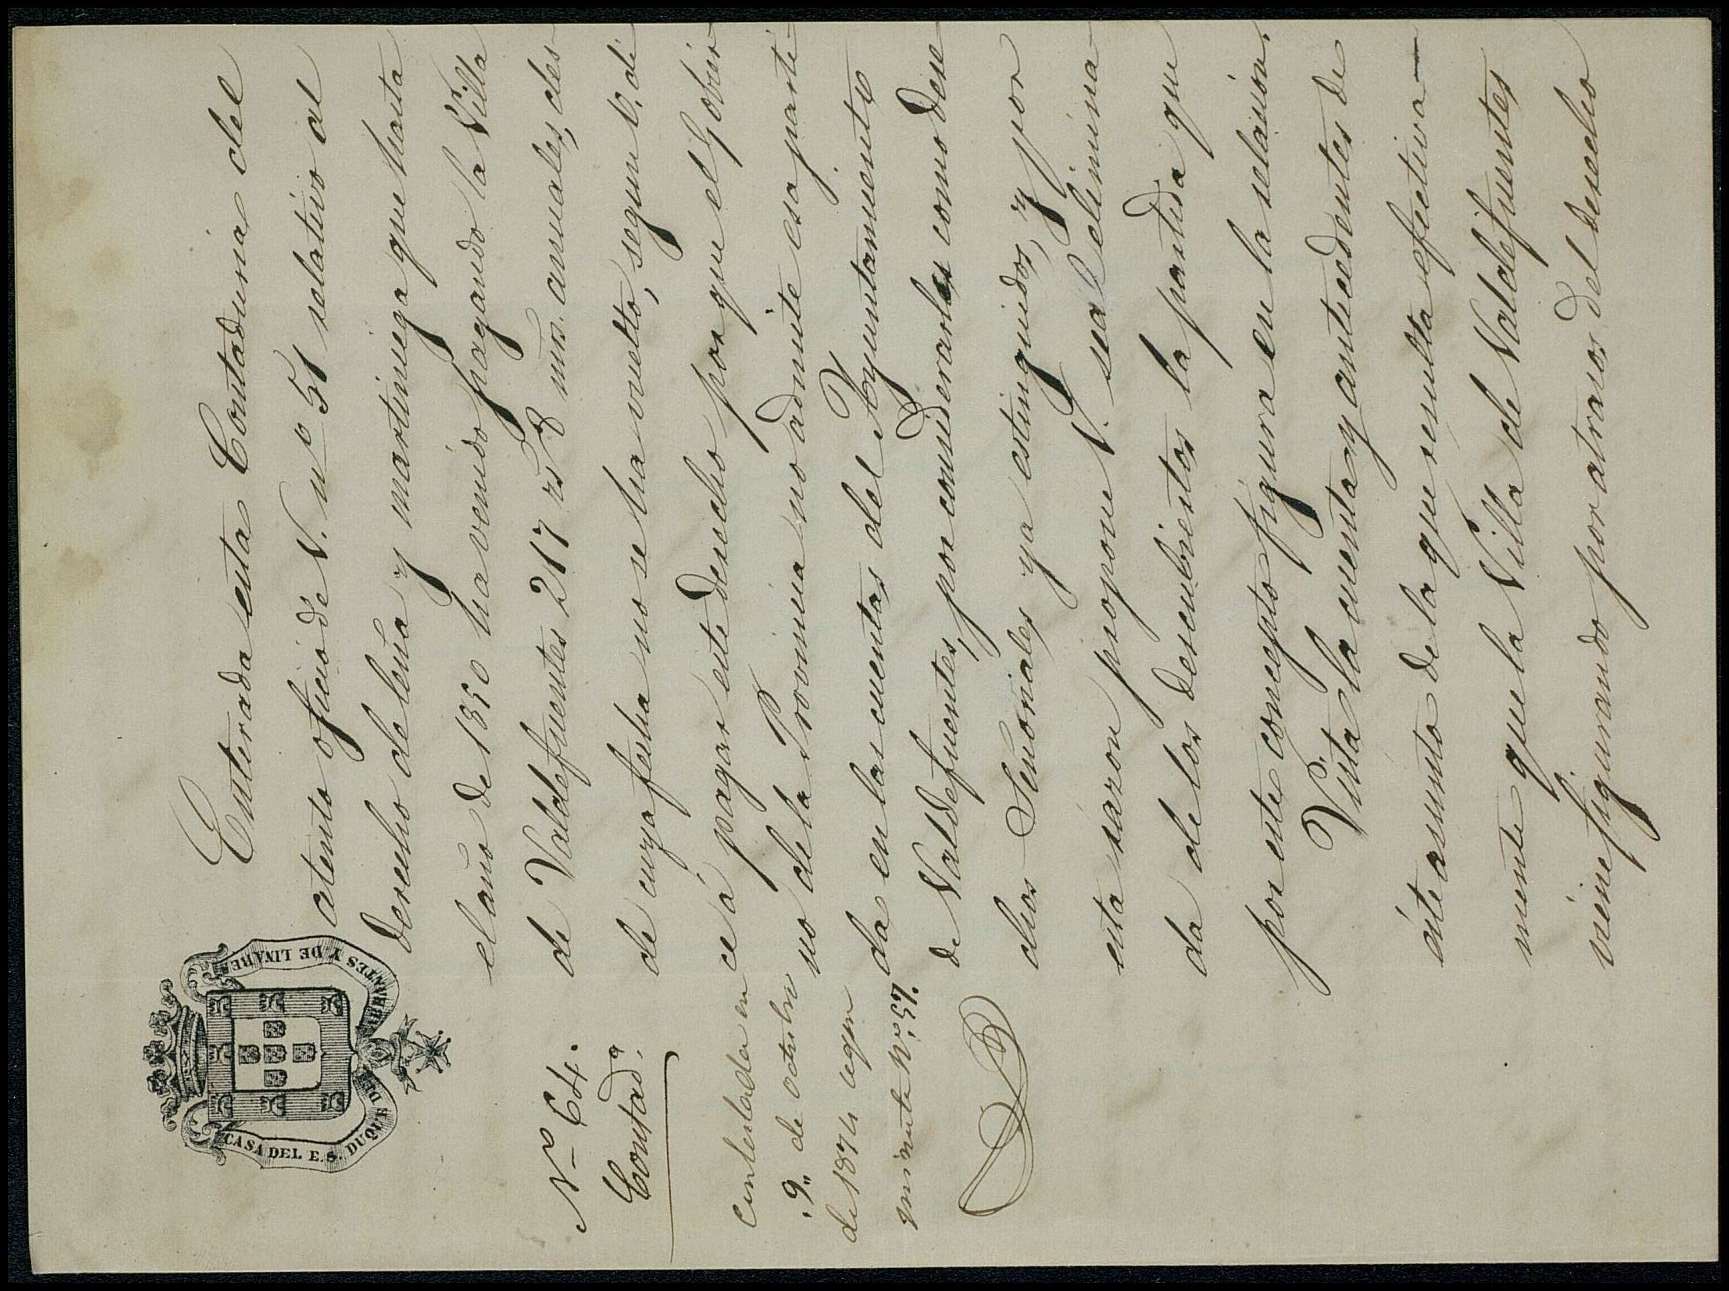 CASA DEL E. S. DUQUE DE ABRANTES Y DE LINARES
Nº 64.
Contadª
Contestada en
9,, de octubre
de 1874 segun
minuta Nº 57.
Enterada esta Contaduria del
atento oficio de V. nº 51 relativo al
derecho de leña y martiniega que hasta
el año de 1850 ha venido pagando la Villa
de Valdefuentes 217 rs 8 mrs. anuales, des
de cuya fecha no se ha vuelto, segun V. di
ce á pagar este derecho por que el Gobier
no de la Provincia no admite esa parti
da en las cuentas del Ayuntamiento
de Valdefuentes, por considerarlas como dere
chos Señoriales ya estinguidos, y por
esta razon propone V. sea elimina
da de los descubiertos la partida que
por este concepto figura en la relacion.
Vista la cuenta y antecedentes de
éste asunto de la que resulta efectiva
mente que la Villa de Valdefuentes
viene figurando por atrasos del derecho